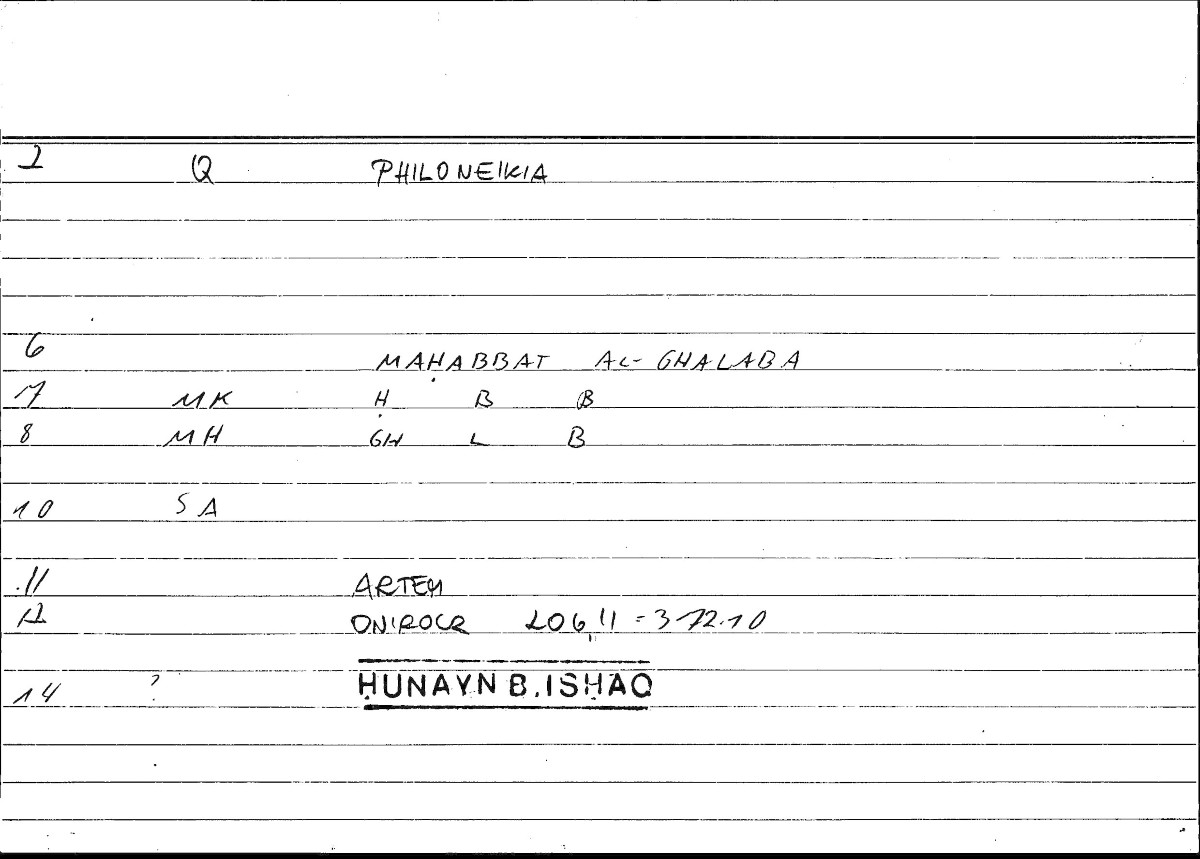 2 Q PHILONEIKIA
6 MAḤABBAT AL-GHALABA
7 MK Ḥ B B
8 MH GH L B
10 SA
11 ARTEM
12 ONIROCR 206,11 = 372.10
14 ? ḤUNAYN B. ISḤAQ